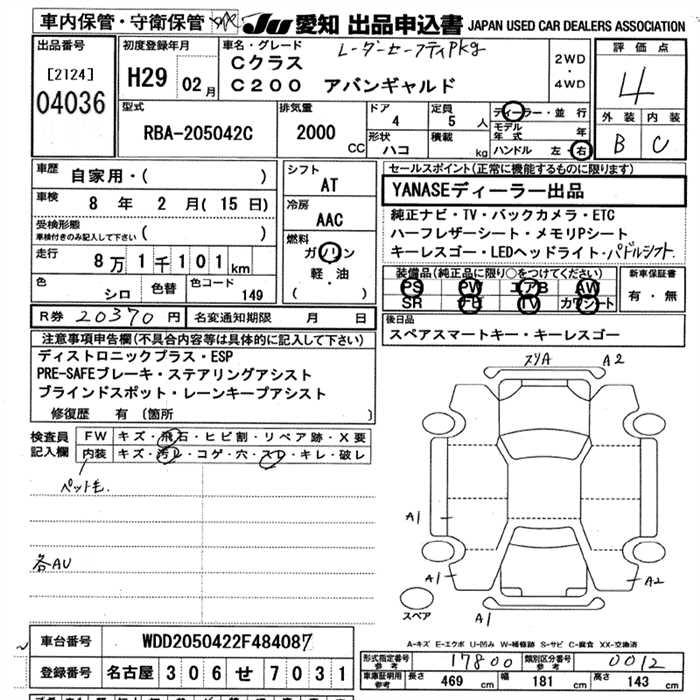 車内保管・守衛保管
JU 愛知 出品申込書 JAPAN USED CAR DEALERS ASSOCIATION
出品番号
[2124]
04036
初度登録年月
H29 02月
車名・グレード
レーダーセーフティPkg
Cクラス
C200 アバンギャルド
2WD
・
4WD
評価点
4
外装 内装
B C
型式
RBA-205042C
排気量
2000
CC
ドア
4
形状
ハコ
定員
5
人
積載
kg
ディーラー・並行
モデル年式 年
ハンドル 左・右
車歴
自家用・( )
車検
8 年 2 月(15日)
受検形態
車検付きのみ記入して下さい ( )
走行
8万1千101km
色
シロ
色替
色コード
149
シフト
AT
冷房
AAC
燃料
ガソリン
軽・油
( )
セールスポイント(正常に機能するものに限ります)
YANASEディーラー出品
純正ナビ・TV・バックカメラ・ETC
ハーフレザーシート・メモリPシート
キーレスゴー・LEDヘッドライト・パドルシフト.
装備品(純正品に限り○をつけてください)
PS PW エアB AW
SR TV カワシート
新車保証書
有・無
R券 20370円
名変通知期限 月 日
後日品
スペアスマートキー・キーレスゴー
注意事項申告欄(不具合内容等は具体的に記入して下さい)
ディストロニックプラス・ESP
PRE-SAFEブレーキ・ステアリングアシスト
ブラインドスポット・レーンキープアシスト
修復歴 有 〔箇所 〕
検査員記入欄
FW キズ・飛石・ヒビ割・リペア跡・X要
内装 キズ・汚レ・コゲ・穴・スレ・キレ・破レ
ペット毛.
各AU
スリA
A2
A1
A1
A2
A1
スペア
A-キズ E-エクボ U-凹み W-補修跡 S-サビ C-腐食 XX-交換済
車台番号 WDD2050422F484087
登録番号 名古屋 306 せ 7031
形式指定番号 参考 17800
類別区分番号 参考 0012
車庫証明用 参考
長さ 469 cm
幅 181 cm
高さ 143 cm